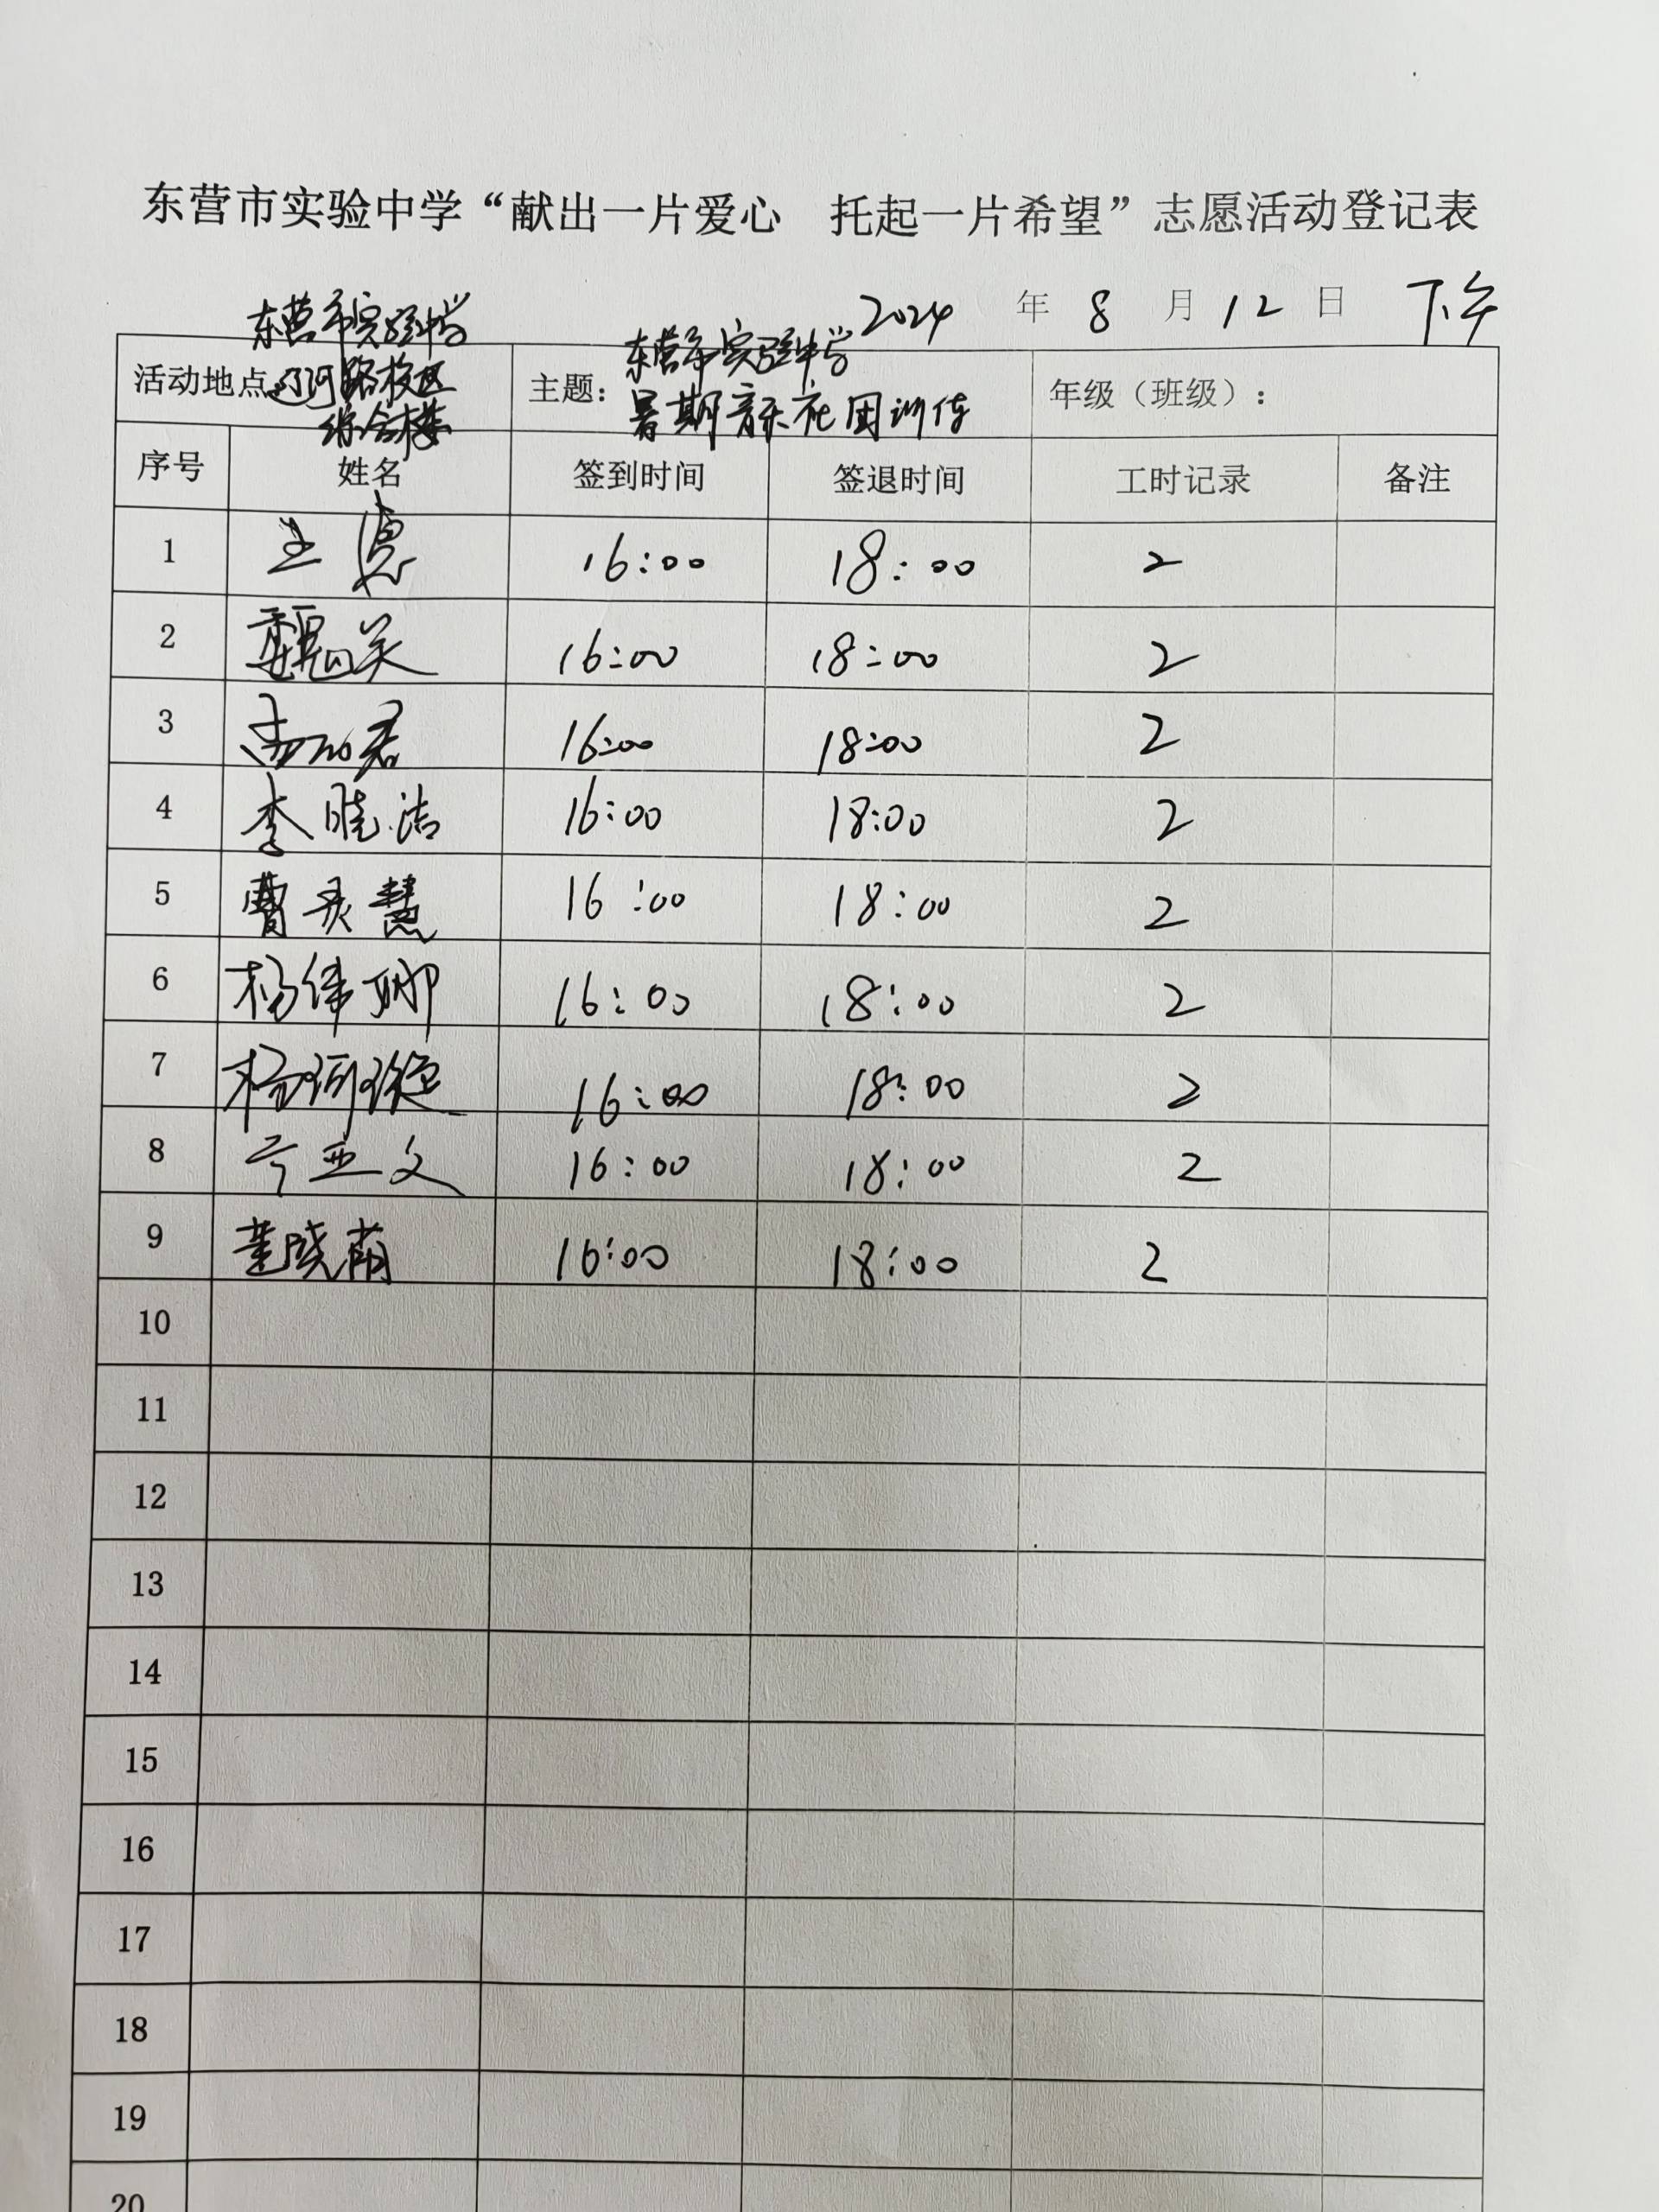 东营市实验中学“献出一片爱心 托起一片希望”志愿活动登记表
2024 年 8 月 12 日 下午
活动地点 东营市实验中学 辽河路校区 综合楼 主题: 东营市实验中学 暑期音乐社团训练 年级（班级）:
序号 姓名 签到时间 签退时间 工时记录 备注
1 王 16:00 18:00 2
2 16:00 18:00 2
3 16:00 18:00 2
4 李晓洁 16:00 18:00 2
5 曹灵慧 16:00 18:00 2
6 杨伟娜 16:00 18:00 2
7 杨 16:00 18:00 2
8 亚文 16:00 18:00 2
9 董晓萌 16:00 18:00 2
10
11
12
13
14
15
16
17
18
19
20